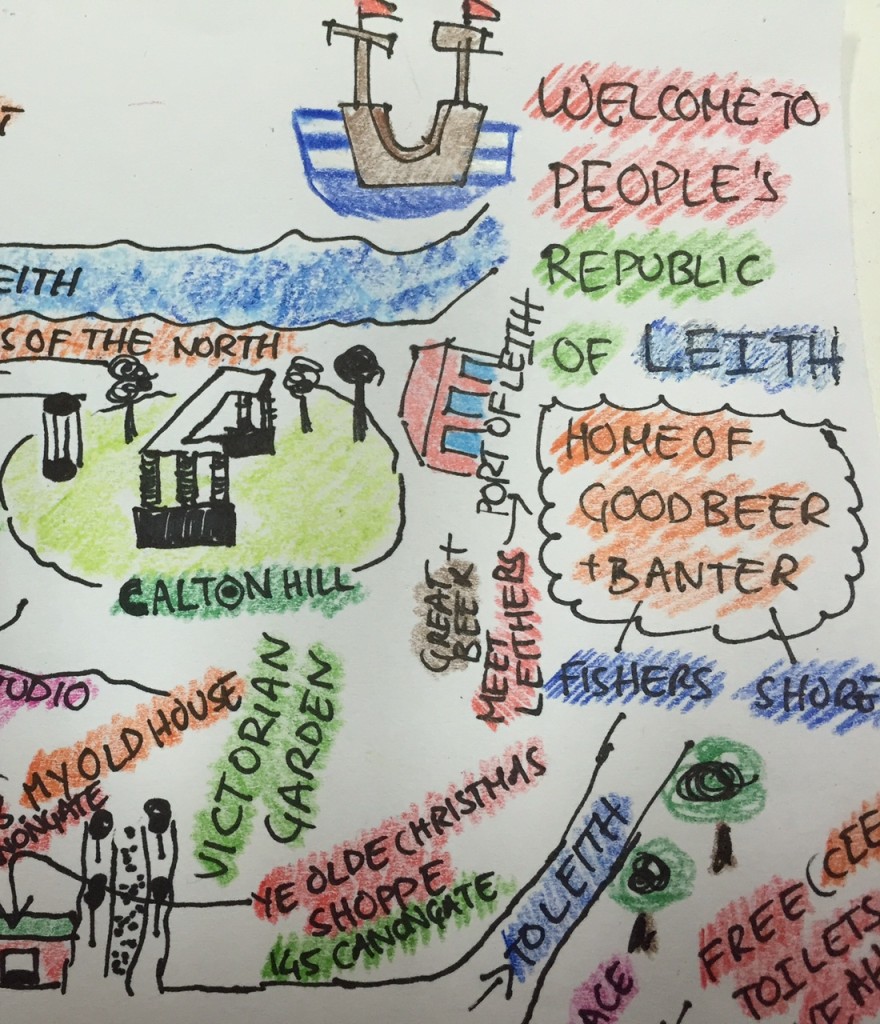 WELCOME TO
PEOPLE'S
REPUBLIC
OF LEITH
EITH
S OF THE NORTH
PORT OF LEITH
HOME OF
GOOD BEER
+ BANTER
CALTON HILL
GREAT
BEER +
MEET
LEITHERS
FISHERS
SHORE
TUDIO
MY OLD HOUSE
NONGATE
VICTORIAN
GARDEN
YE OLDE CHRISTMAS
SHOPPE
145 CANONGATE
TO LEITH
FREE (CEE
TOILETS
ACE